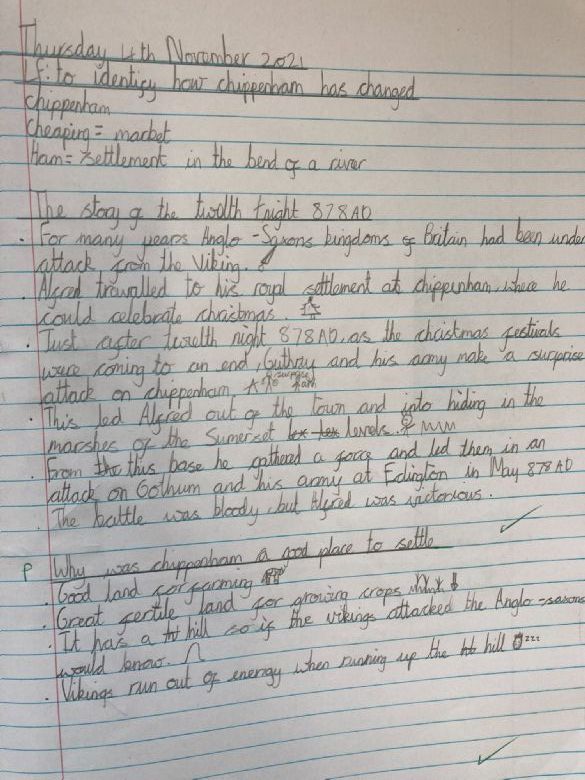 Thursday 4th November 2021
Lf: to identify how chippenham has changed
Chippenham
Cheaping = market
Ham = settlement in the bend of a river
The story of the twelth knight 878AD
. For many years Anglo-Saxons kingdoms of Britain had been under
attack from the Viking.
. Alfred travelled to his royal settlement at chippenham, where he
could celebrate christmas.
. Just after twelth night 878AD, as the christmas festivals
were coming to an end, Guthruy and his army make a surprise
attack on chippenham.
. This led Alfred out of the town and into hiding in the
marshes of the Sumerset levels.
. From this base he gathered a force and led them in an
attack on Gothum and his army at Edington in May 878AD
. The battle was bloody, but Alfred was victorious.
P Why was chippenham a good place to settle
. Good land for farming
. Great fertile land for growing crops
. It has a hill so if the vikings attacked the Anglo-saxons
would know.
. Vikings run out of energy when running up the hill